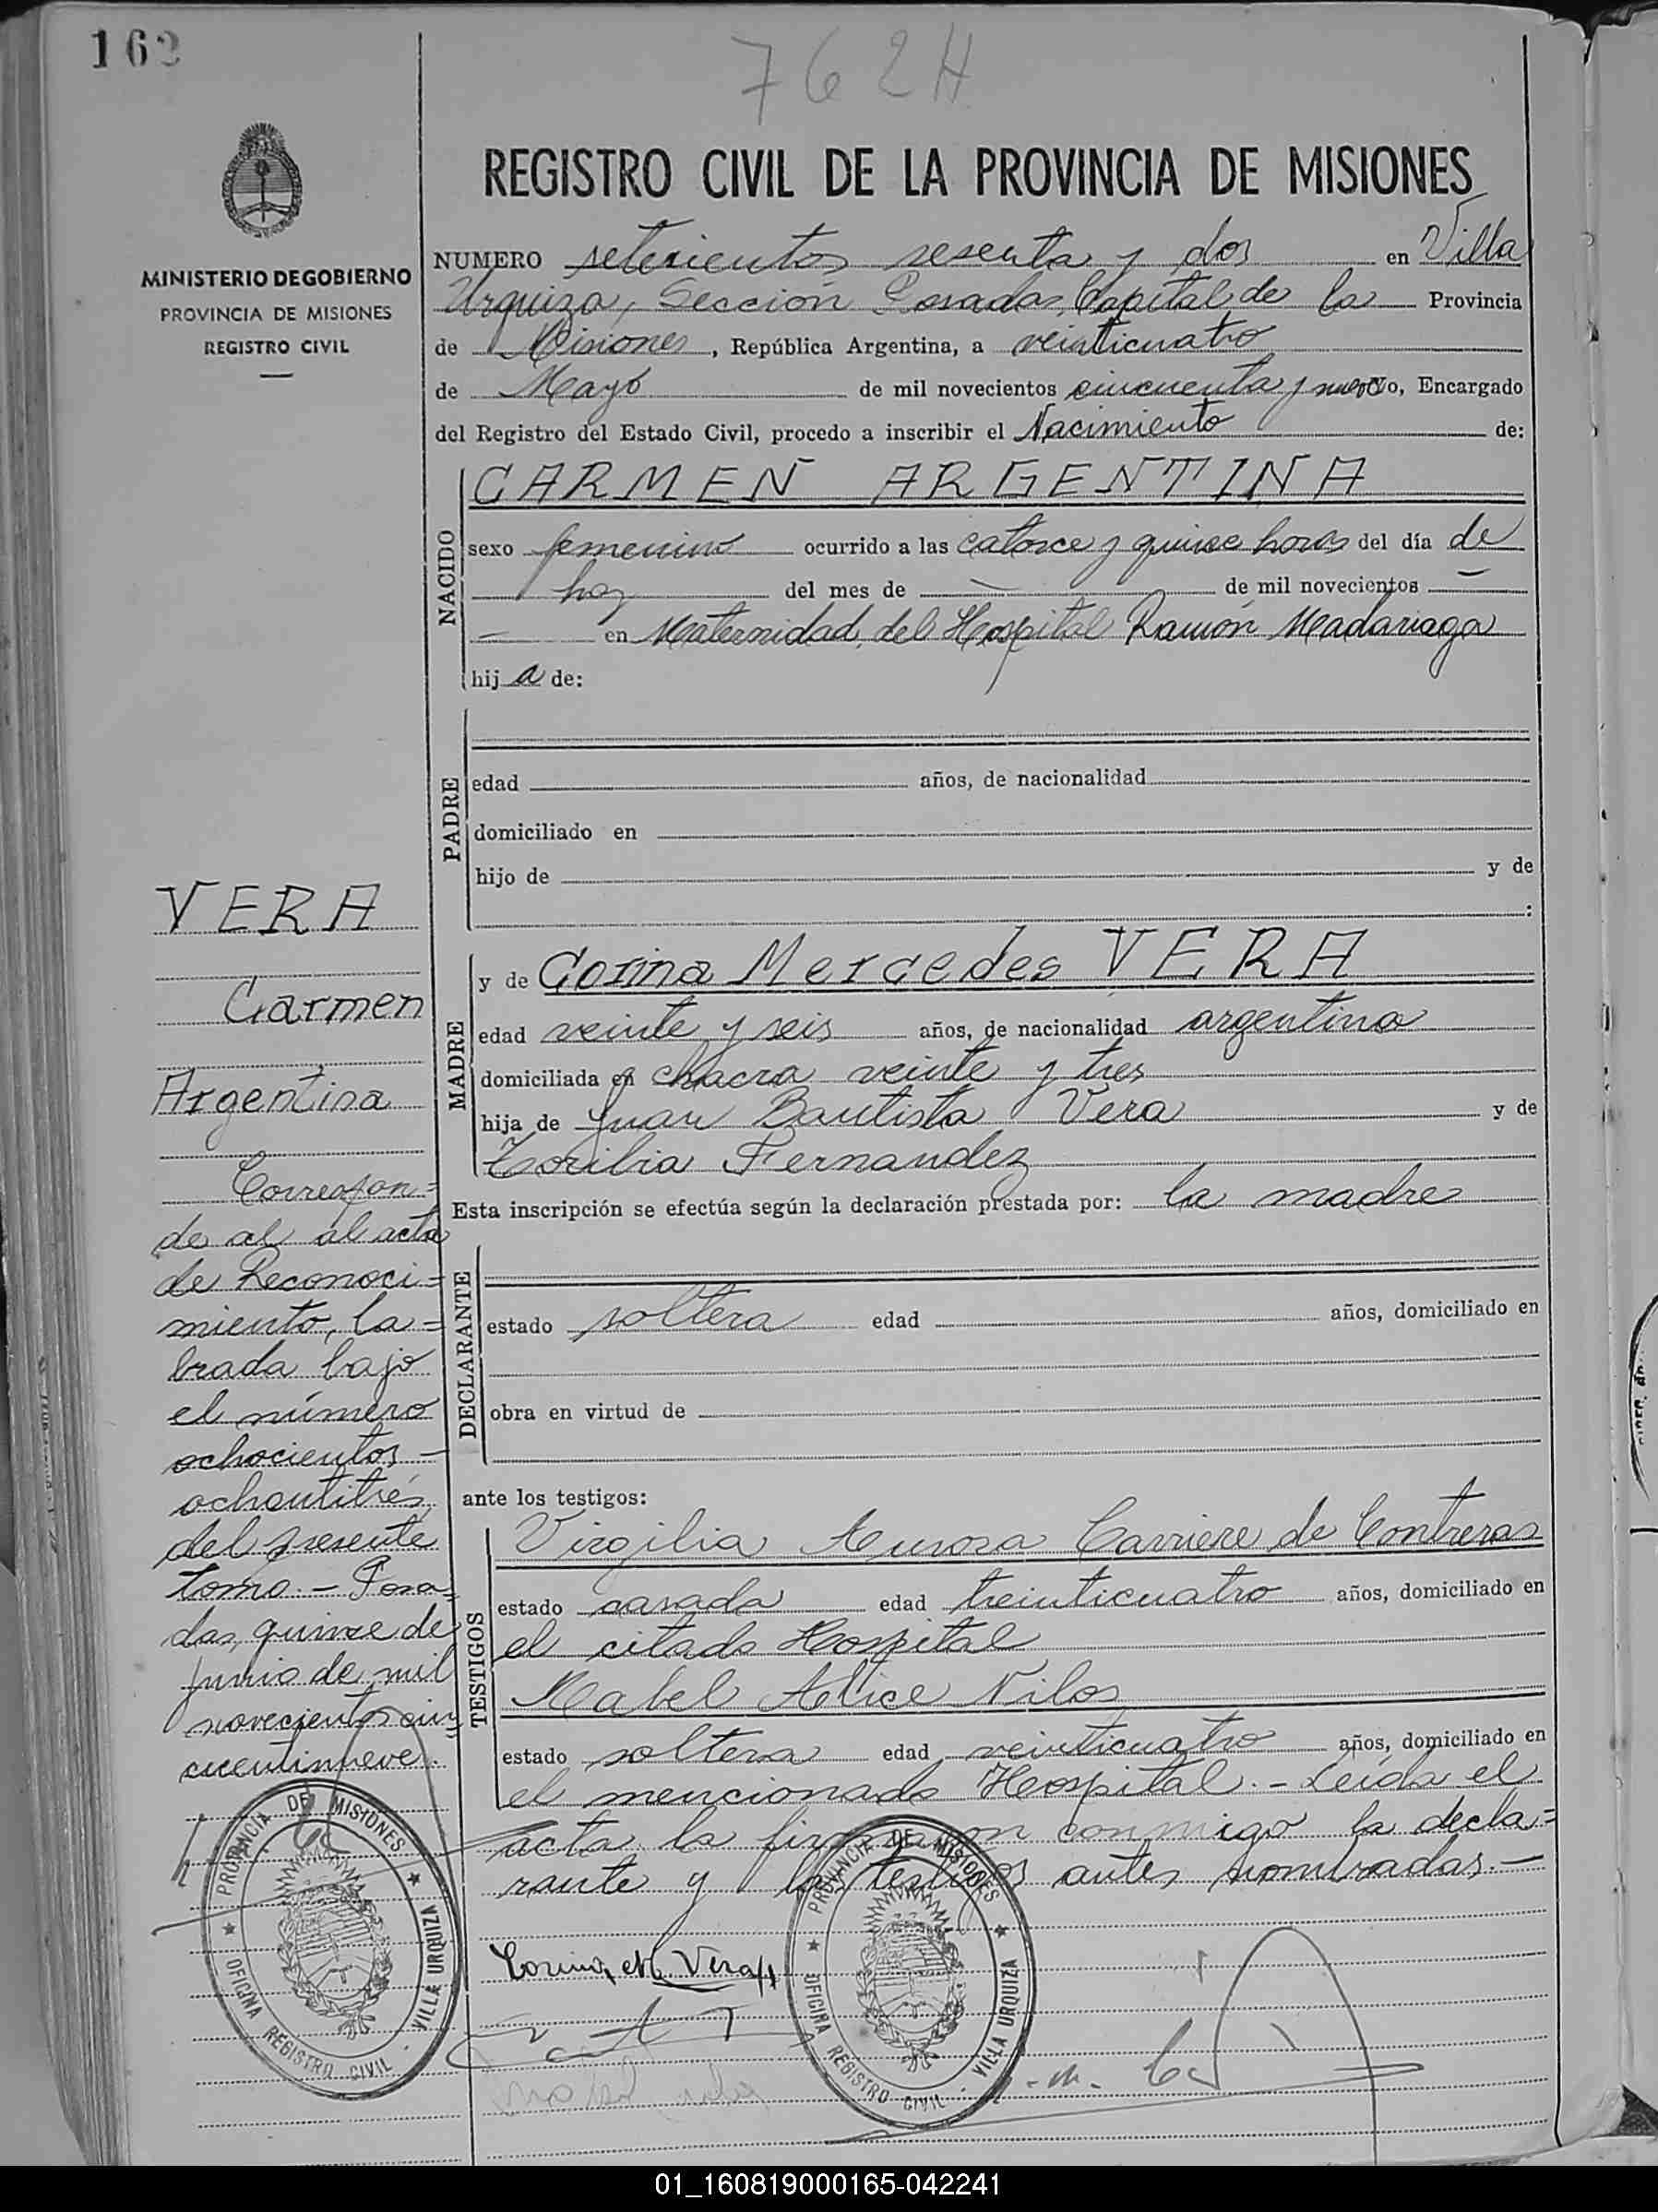 162
762H
MINISTERIO DE GOBIERNO
PROVINCIA DE MISIONES
REGISTRO CIVIL
REGISTRO CIVIL DE LA PROVINCIA DE MISIONES
NUMERO setecientos sesenta y dos en Villa
Urquiza, Sección Posadas, Capital de la Provincia
de Misiones, República Argentina, a veinticuatro
de Mayo de mil novecientos cincuenta y nueve yo, Encargado
del Registro del Estado Civil, procedo a inscribir el Nacimiento de:
NACIDO
CARMEN ARGENTINA
sexo femenino ocurrido a las catorce y quince horas del día de
hoy del mes de — de mil novecientos —
— en Maternidad del Hospital Ramón Madariaga
hij a de:
PADRE
edad años, de nacionalidad
domiciliado en
hijo de y de
:
MADRE
y de Corina Mercedes VERA
edad veinte y seis años, de nacionalidad argentina
domiciliada en chacra veinte y tres
hija de Juan Bautista Vera y de
Toribia Fernandez
Esta inscripción se efectúa según la declaración prestada por: la madre
DECLARANTE
estado soltera edad años, domiciliado en
obra en virtud de
ante los testigos:
TESTIGOS
Virgilia Aurora Carriere de Contreras
estado casada edad treinticuatro años, domiciliado en
el citado Hospital
Mabel Alice Nilos
estado soltera edad veinticuatro años, domiciliado en
el mencionado Hospital.- Leída el
acta la firmaron conmigo la decla=
rante y las testigos antes nombradas.—
Corina M. Vera
VERA
Carmen
Argentina
Correspon=
de al al acta
de Reconoci=
miento, la=
brada bajo
el número
ochocientos—
ochentitrés
del presente
tomo.— Posa=
das, quince de
Junio de mil
novecientos cin
cuentinueve.
PROVINCIA DE MISIONES
OFICINA REGISTRO CIVIL · VILLA URQUIZA
PROVINCIA DE MISIONES
OFICINA REGISTRO CIVIL · VILLA URQUIZA
01_160819000165-042241